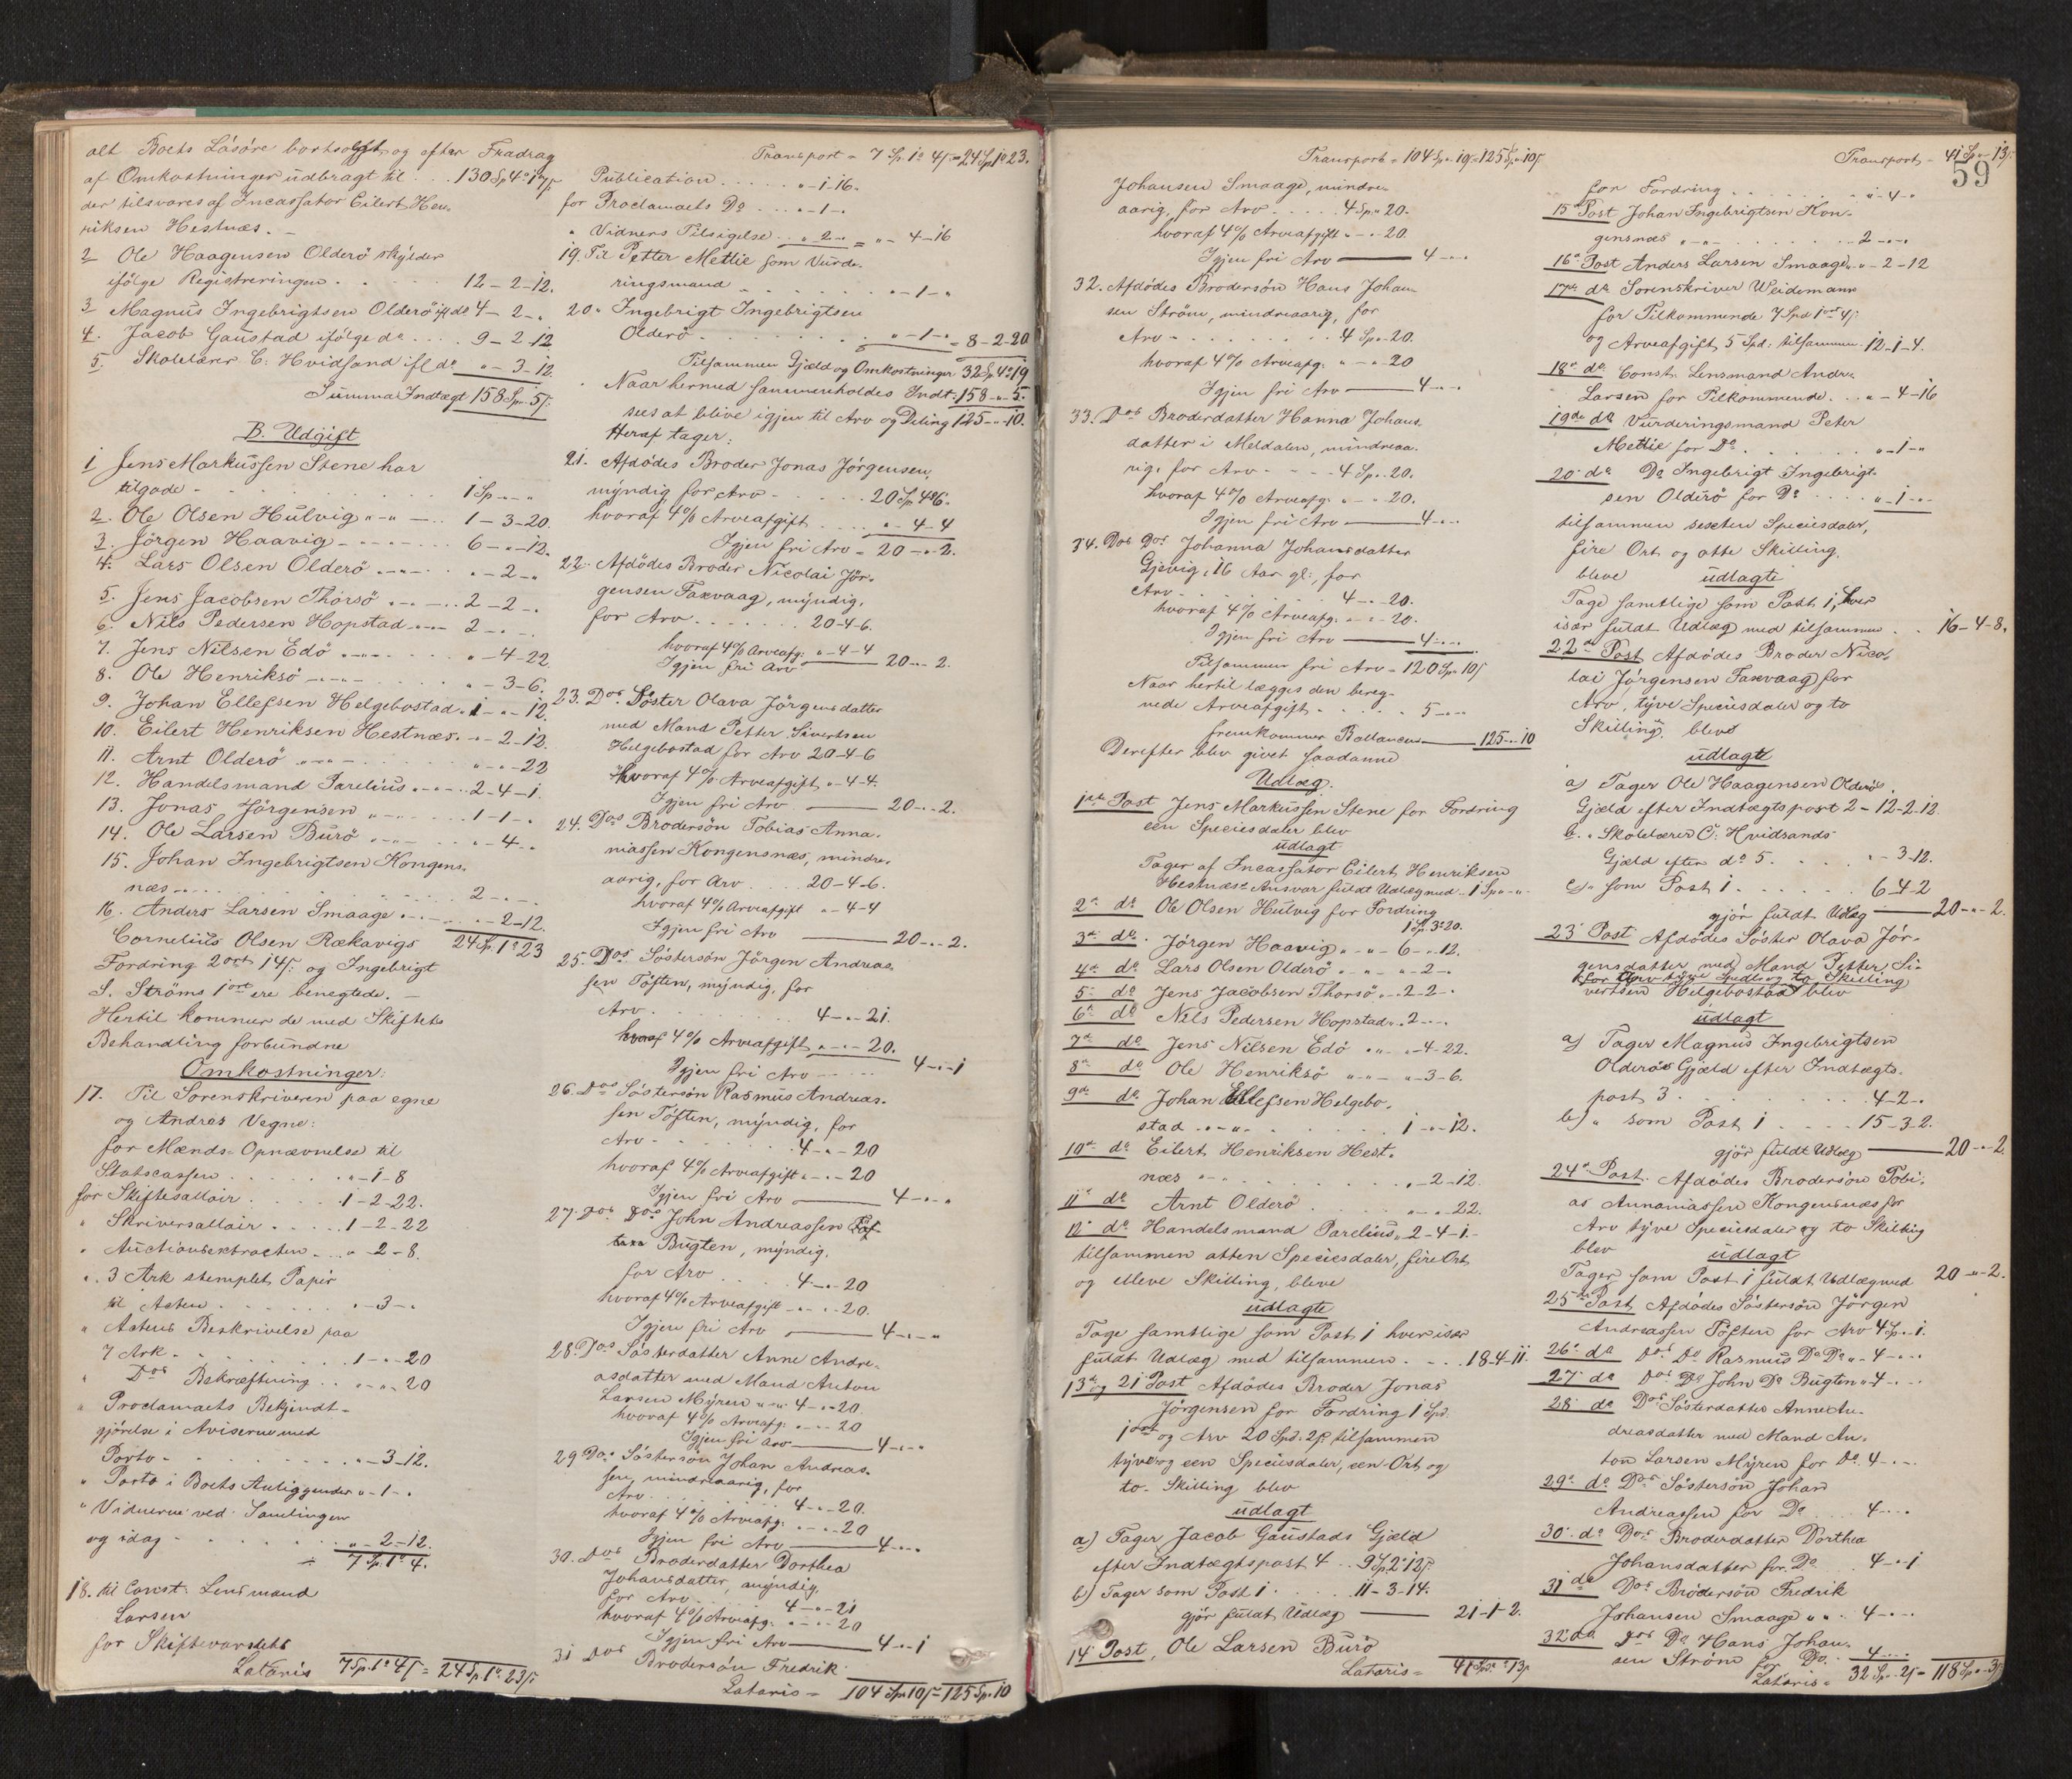 alt Boets Løsøre bortsolgt og efter Fradrag
af Omkostninger udbragt til . . . 130 Sp 4 o 17 s
der tilsvares af Incassator Eilert Hen-
riksen Hestnæs. -
2 Ole Haagensen Olderö skylder
ifölge Registreringen . . . 12 - 2 - 12.
3 Magnus Ingebrigtsen Olderö ifl do 4 - 2 - "
4. Jacob Gaustad ifölge do . . . . 9 - 2 - 12
5. Skolelærer C. Hvidsand ifl do " - 3 - 12.
Summa Indtægt 158 Sp - " - 5 s.
B. Udgift
1 Jens Markussen Stene har
tilgode - . . . . . 1 Sp - " - "
2. Ole Olsen Hulvig " - " - . . 1 - 3 - 20.
3. Jörgen Haavig - . . . . 6 - " - 12.
4. Lars Olsen Olderö . . . . " - 2 - "
5. Jens Jacobsen Thorsö . - . - . . 2 - 2 - "
6. Nils Pedersen Hopstad . . . 2 - " - "
7. Jens Nilsen Edö . . . . . " - 4 - 22.
8. Ole Henriksö - " - . . . . " - 3 - 6.
9. Johan Ellefsen Helgebostad . 1 - " - 12.
10. Eilert Henriksen Hestnæs . " - 2 - 12.
11. Arnt Olderö " - " - . . . . " - " - 22
12. Handelsmand Parelius . - . . 2 - 4 - 1.
13. Jonas Jörgensen " - " - . . . 1 - 1 - "
14. Ole Larsen Burö . . . . . " - 4 - "
15. Johan Ingebrigtsen Kongens-
næs . . . . . . . 2 - " - "
16. Anders Larsen Smaage . . . " - 2 - 12.
24 Sp. 1 o 23
Cornelius Olsen Rækavigs
Fordring 2 ort 14 s: og Ingebrigt
S. Ströms 1 ort ere benegtede. -
Hertil kommer de med Skiftets
Behandling forbundne
Omkostninger:
17. Til Sorenskriveren paa egne
og Andres Vegne:
for Mænds-Opnævnelse til
Statscassen . . . . . " - 1 - 8
for Skiftesallair . . . . 1 - 2 - 22.
" Skriversallair . . . . 1 - 2 - 22
" Auctionsextracten . . " - 2 - 8.
" 3 Ark stemplet Papir
til Acten . . . . . . " - 3 - "
" Actens Beskrivelse paa
7 Ark . . . . . . . 1 - " - 20
" Dos Bekræftning . . " - " - 20
" Proclamaets Bekjendt-
gjörelse i Aviserne med
Porto - . . . . . . " - 3 - 12.
" Porto i Boets Anliggender " - 1 - "
" Vidnerne ved Samlingen
og idag - . . . . . " - 2 - 12.
7 Sp. 1 o 4.
18. til Const: Lensmand
Larsen
for Skiftevarslets
Lateris 7 Sp. 1 o 4 s = 24 Sp. 1 o 23 s.
Transport = 7 Sp. 1 o 4 s = 24 Sp 1 o 23.
Publication . . . . . " - 1 - 16.
for Proclamaets Do . . . . " - 1 - "
" Vidners Tilsigelse . . " - 2 - " = " - 4 - 16
19. Til Petter Mettie som Vurde-
ringsmand . . . . . . . " - 1 - "
20. " Ingebrigt Ingebrigtsen
Olderö . . . . . . . . " - 1 - " = 8 - 2 - 20
Tilsammen Gjæld og Omkostninger 32 Sp 4 o 19
Naar hermed sammenholdes Indt: 158 - " - 5.
sees at blive igjen til Arv og Deling 125 - " - 10.
Heraf tager:
21. Afdödes Broder Jonas Jörgensen,
myndig, for Arv - . . . . . 20 Sp 4 o 6.
hvoraf 4% Arveafgift . . . " - 4 - 4
Igjen fri Arv = 20 - " - 2.
22. Afdödes Broder Nicolai Jör-
gensen Faxvaag, myndig,
for Arv . . . . . . . 20 - 4 - 6.
hvoraf 4% Arveafg: " - 4 - 4
Igjen fri Arv 20 - " - 2.
23. Dos Söster Olava Jörgensdatter
med Mand Petter Sivertsen
Helgebostad for Arv 20 - 4 - 6
hvoraf 4% Arveafgift " - 4 - 4.
Igjen fri Arv 20 - " - 2.
24. Dos Brodersön Tobias Anna-
niassen Kongensnæs, mindre-
aarig, for Arv . . . . 20 - 4 - 6.
hvoraf 4% Arveafgift " - 4 - 4
Igjen fri Arv 20 - " - 2.
25. Dos Söstersön Jörgen Andreas-
sen Töften, myndig, for
Arv . . . . . . . . 4 - " - 21.
hvoraf 4% Arveafgift " - " - 20.
Igjen fri Arv 4 - " - 1
26. Dos Söstersön Rasmus Andreas-
sen Töften, myndig, for
Arv . . . . . . . 4 - " - 20
hvoraf 4% Arveafgift " - " - 20
Igjen fri Arv 4 - " - "
27. Dos Dos John Andreassen
Bugten, myndig,
for Arv . . . . 4 - " - 20
hvoraf 4% Arveafgift " - " - 20.
Igjen fri Arv 4 - " - "
28. Dos Sösterdatter Anne Andre-
asdatter med Mand Anton
Larsen Myren " - " 4 - " - 20.
hvoraf 4% Arveafg: " - " - 20
Igjen fri Arv 4 - " - "
29 Dos Söstersön Johan Andreas-
sen, mindreaarig, for
Arv . . . . . . . 4 - " - 20.
hvoraf 4% Arveafg: " - " - 20
Igjen fri Arv 4 - " - "
30. Dos Broderdatter Dorthea
Johansdatter, myndig,
for Arv . . . . . 4 - " - 21
hvoraf 4% Arveafg: " - " - 20
Igjen fri Arv 4 - " - 1
31 Dos Brodersön Fredrik
Lateris = 104 Sp " 10 s = 125 Sp. " 10
Transport = 104 Sp " 10 s = 125 Sp " 10 s.
Johansen Smaage, mindre-
aarig, for Arv . . . . . 4 Sp " 20.
hvoraf 4% Arveafgift " - " - 20.
Igjen fri Arv 4 - " - "
32. Afdödes Brodersön Hans Johan-
sen Ström, mindreaarig, for
Arv - . . . . . . . . 4 Sp " 20.
hvoraf 4% Arveafg: " - " 20
Igjen fri Arv 4 - " - "
33. Dos Broderdatter Hanna Johans-
datter i Meldalen, mindreaa-
rig, for Arv - . . - 4 Sp " 20.
hvoraf 4% Arveafg: " - " 20.
Igjen fri Arv 4 - " - "
34. Dos Dos Johanna Johansdatter
Gjevig, 16 Aar gl:, for
Arv - . . . . . . 4 - " - 20.
hvoraf 4% Arveafg: " - " 20.
Igjen fri Arv 4 - " - "
Tilsammen fri Arv = 120 Sp " 10 s
Naar hertil lægges den bereg-
nede Arveafgift . . . . . 5 - " - "
fremkommer Ballancen 125 - " - 10
Derefter blev givet saadanne
Udlæg.
1ste Post Jens Markussen Stene for Fordring
een Speciesdaler blev
udlagt
Tager af Incassator Eilert Henriksen
Hestnæs's Ansvar fuldt Udlæg med . 1 Sp " - "
2 d do Ole Olsen Hulvig for Fordring
1 Sp 3 o 20.
3 d do . Jörgen Haavig " - " 6 - " - 12.
4 d do Lars Olsen Olderö " - " " - 2 - "
5 do Jens Jacobsen Thorsö " . 2 - 2 - "
6 t do Nils Pedersen Hopstad . . 2 - " - "
7 d do Jens Nilsen Edö " - " " - 4 - 22.
8 d do Ole Henriksö " - " " - 3 - 6.
9 de do Johan Ellefsen Helgebo-
stad . . - . . . . . . . 1 - " - 12.
10 d do Eilert Henriksen Hest-
næs " - " . . . . . . . " - 2 - 12.
11 do Arnt Olderö . . . . . " - " - 22.
12 do Handelsmand Parelius . 2 - 4 - 1.
tilsammen atten Speciesdaler, fire Ort
og elleve Skilling, bleve
udlagte
Tage samtlige som Post 1 hver især
fuldt Udlæg med tilsammen . . . . 18 - 4 - 11.
13 d og 21 Post Afdödes Broder Jonas
Jörgensen for Fordring 1 Spd.
1 ort og Arv 20 Spd. 2 s: tilsammen
tyve og een Speciesdaler, een Ort og
to Skilling blev
udlagt
a) Tager Jacob Gaustads Gjæld
efter Indtægtspost 4 . . 9 Sp 2 o 12 s.
b) Tager som Post 1 . . . . 11 - 3 - 14.
gjör fuldt Udlæg 21 - 1 - 2.
14 Post, Ole Larsen Burö
Lateris = 41 Sp " 13 s
59
Transport - 41 Sp " - 13 s.
for Fordring . . . . . . . " - 4 - "
15 Post Johan Ingebrigtsen Kon-
gensnæs " - " . . . . . . . 2 - " - "
16 d Post Anders Larsen Smaage . " - 2 - 12
17 de do Sorenskriver Weidemann
for Tilkommende 7 Spd 1 ort 4 s:
og Arveafgift 5 Spd: tilsammen 12 - 1 - 4.
18 d do Const: Lensmand Andr.
Larsen for Tilkommende . . " - 4 - 16
19 de do Vurderingsmand Peter
Mettie for Do . . . . . . . " - 1 - "
20 do Do Ingebrigt Ingebrigt-
sen Olderö for Do . . . . " - 1 - "
tilsammen sexten Speciesdaler,
fire Ort og otte Skilling,
bleve udlagte
Tage samtlige som Post 1, hver
især fuldt Udlæg med tilsammen . . 16 - 4 - 8.
22 d Post Afdödes Broder Nico-
lai Jörgensen Faxvaag for
Arv, tyve Speciesdaler og to
Skilling, blev
udlagt
a) Tager Ole Haagensen Olderös
Gjæld efter Indtægtspost 2 - 12 - 2 - 12.
b. " Skolelærer C. Hvidsands
Gjæld efter do 5. . . . . " - 3 - 12.
c) " som Post 1 . . . . . . 6 - 4 - 2
gjör fuldt Udlæg 20 - " - 2.
23 Post Afdödes Söster Olava Jör-
gensdatter med Mand Petter Si-
for Arv tyve Spdlr og to Skilling
vertsen Helgebostad blev
udlagt
a) Tager Magnus Ingebrigtsen
Olderös Gjæld efter Indtægts-
post 3 . . . . . . . . . 4 - 2 - "
b) " som Post 1 . . . . 15 - 3 - 2.
gjör fuldt Udlæg 20 - " - 2.
24 d Post. Afdödes Brodersön Tobi-
as Annaniassen Kongensnæs for
Arv tyve Speciesdaler og to Skilling
blev udlagt
Tager som Post 1 fuldt Udlæg med 20 - " - 2.
25 de Post Afdödes Söstersön Jörgen
Andreassen Töften for Arv 4 Sp " - 1.
26 do Dos Do Rasmus Do Do " - 4 - " - "
27 do Dos Do John Do Bugten " 4 - " - "
28 do Dos Sösterdatter Anne An-
dreasdatter med Mand An-
ton Larsen Myren for Do. 4 - " - "
29 d do Dos Söstersön Johan
Andreassen for Do . . . 4 - " - "
30 do Dos Broderdatter Dorthea
Johansdatter for Do . . 4 - " - 1
31 do Dos Brodersön Fredrik
Johansen Smaage " " . 4 - " - "
32 do Dos Do Hans Johan-
sen Ström for Do - 4 - " - "
Lateris = 32 Sp. " - 2 s = 118 Sp. " - 3 s